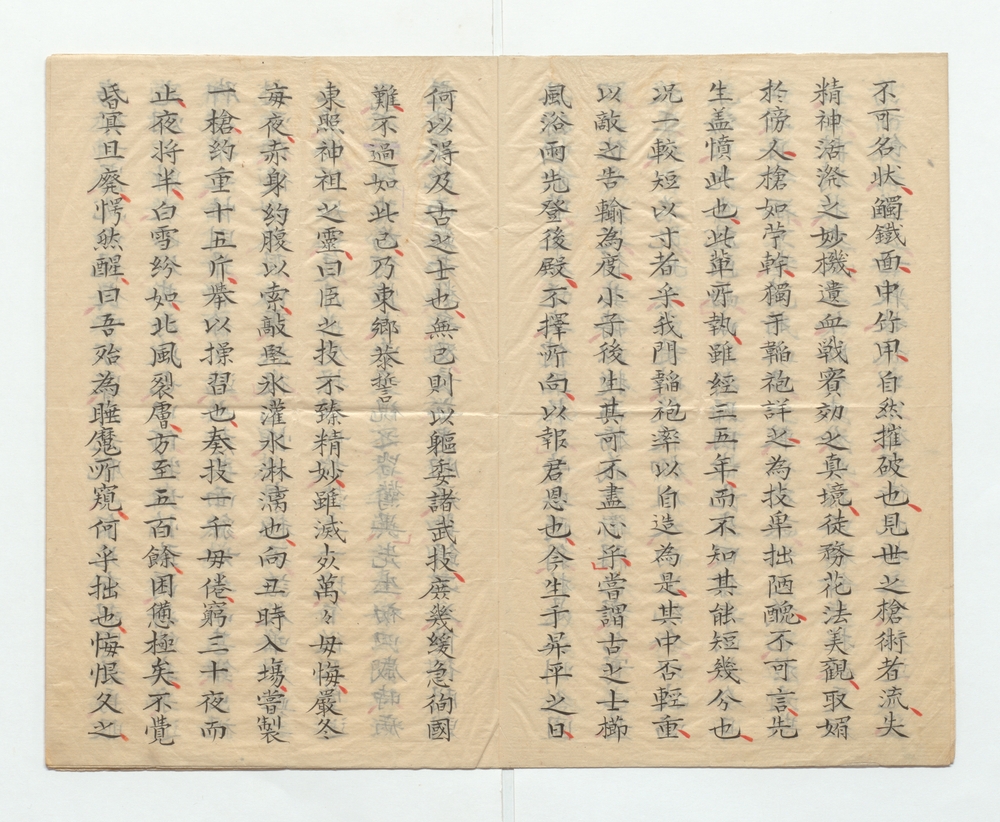 不可名状觸鐵面串竹甲自然摧破也見世之槍術者流失
精神活潑之妙機遺血戰實効之真境徒務花法美觀取媚
於傍人槍如苧幹獨于韜袍詳之為技卑拙陋醜不可言先
生盖憤此也此輩所執雖經三五年而不知其能短幾分也
況一較短以寸者乎我門韜袍率以自造為是其中否輕重
以敵之告輸為度小子後生其可不盡心乎嘗謂古之士櫛
風浴雨先登後殿不擇所向以報君恩也今生于昇平之日
何以得及古之士也無已則以軀委諸武技庶幾緩急徇國
難不過如此已乃東鄉恭誓
東照神祖之靈曰臣之技不臻精妙雖滅歿萬々毋悔嚴冬
每夜赤身約腹以索敲堅氷灌水淋漓也向丑時入場嘗製
一槍約重十五斤舉以操習也奏技一千毋倦窮三十夜而
止夜将半白雪紛如北風裂膚方至五百餘困憊極矣不覺
昏冥且廢愕然醒曰吾殆為睡魔所窺何乎拙也悔恨久之